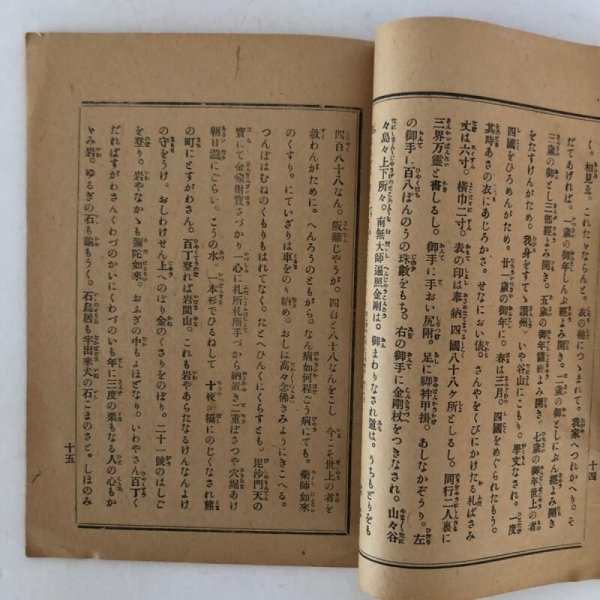 く。相見ゑ。これたならんと。衣の袖につゝまれて。我家へつれかへり。そ
だてあげれば。一歳の御年しんぶ經よみ開き。二歳の御としにぶん經よみ開き
三歳の御とし三部經よみ開き。五歳の御年
をたすけんがため。我身をすてゝ讃州。いや谷山にこもり。學文なされ。一度
四國をひろめんがため。廿一歳の御年に。春は三月。四國をめぐられたもう。
其時あさの衣にあじろかさ。せなにおい俵。さんやをくびにかけたる札ばさみ
丈は六寸。橫巾二寸。表の印は奉納四國八十八ケ所としるし。同行二人裏に
三界万靈と書しるし。御手に手おい尻剛。足に脚袢甲掛。あしなかぞうり。左
の御手に百八ぼんのうの珠數をもち。右の御手に金剛杖をつきなされ。山々谷
々島々上下所々。南無大師遍照金剛は。御まわりなされ道は。うちもどりをも
十四
四百八十八なん。阪難じやうが。四百と八十八なんをこし 今こそ世上の者を
救わんがために。へんろうのともがら。なん病如何程ごう病にても。藥師如來
のくすり。にていざりは車をのり納め。おしは高々念佛きみようにきこへる。
つんぼはむねのくもりもはれてなく。たとへひんくにくらすとも。毘沙門天の
寶にて金銀財寶さづかり一心に札所札所手づから納置き二重ばさつや穴堀あけ
朝日瀧にごらい。こうの水。一本杉でひるねして 十夜が橋にのじくなされ熊
の町にとすがわさん。百丁登れば岩間山。これも岩やあらたなるけんなんよけ
の守をうけ。おしわけせん上へのぼり金のくさりをのぼり。二十一號のはしご
を登り。岩やなかゝも彌陀如來。おふぎの中もよほどなり。いわやさん百丁く
だればすがわさんくわづのかいにくわづのいも年に三度の栗もなる人の心もか
がみ岩。ゆるぎの石も龜もうく。石鳥居も年出來犬の石こまのさと。しほのみ
十五